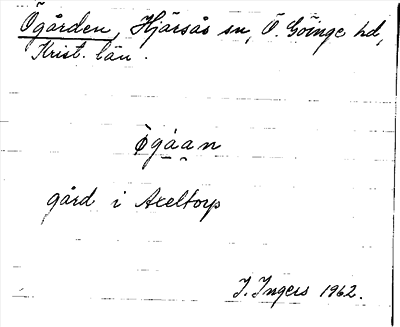 Ögården, Hjärsås sn, Ö. Göinge hd,
Krist. län.
ø̀gáan
gård i Axeltorp
I. Ingers 1962.